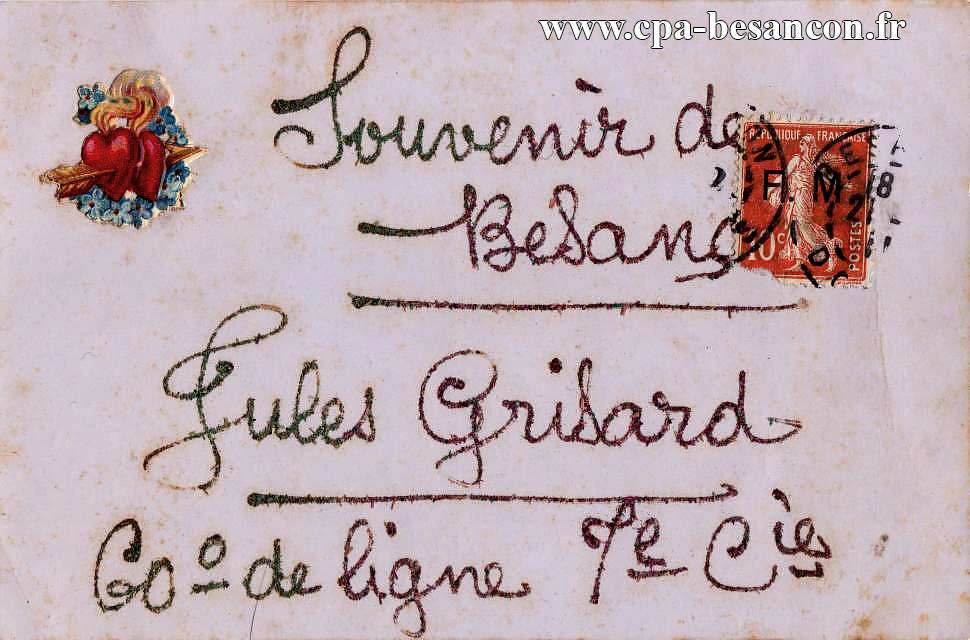 www.cpa-besancon.fr
Souvenir de
Besanç
REPUBLIQUE FRANÇAISE
F. M
10 c
POSTES
Jules Grisard
60º de ligne 7e Cie